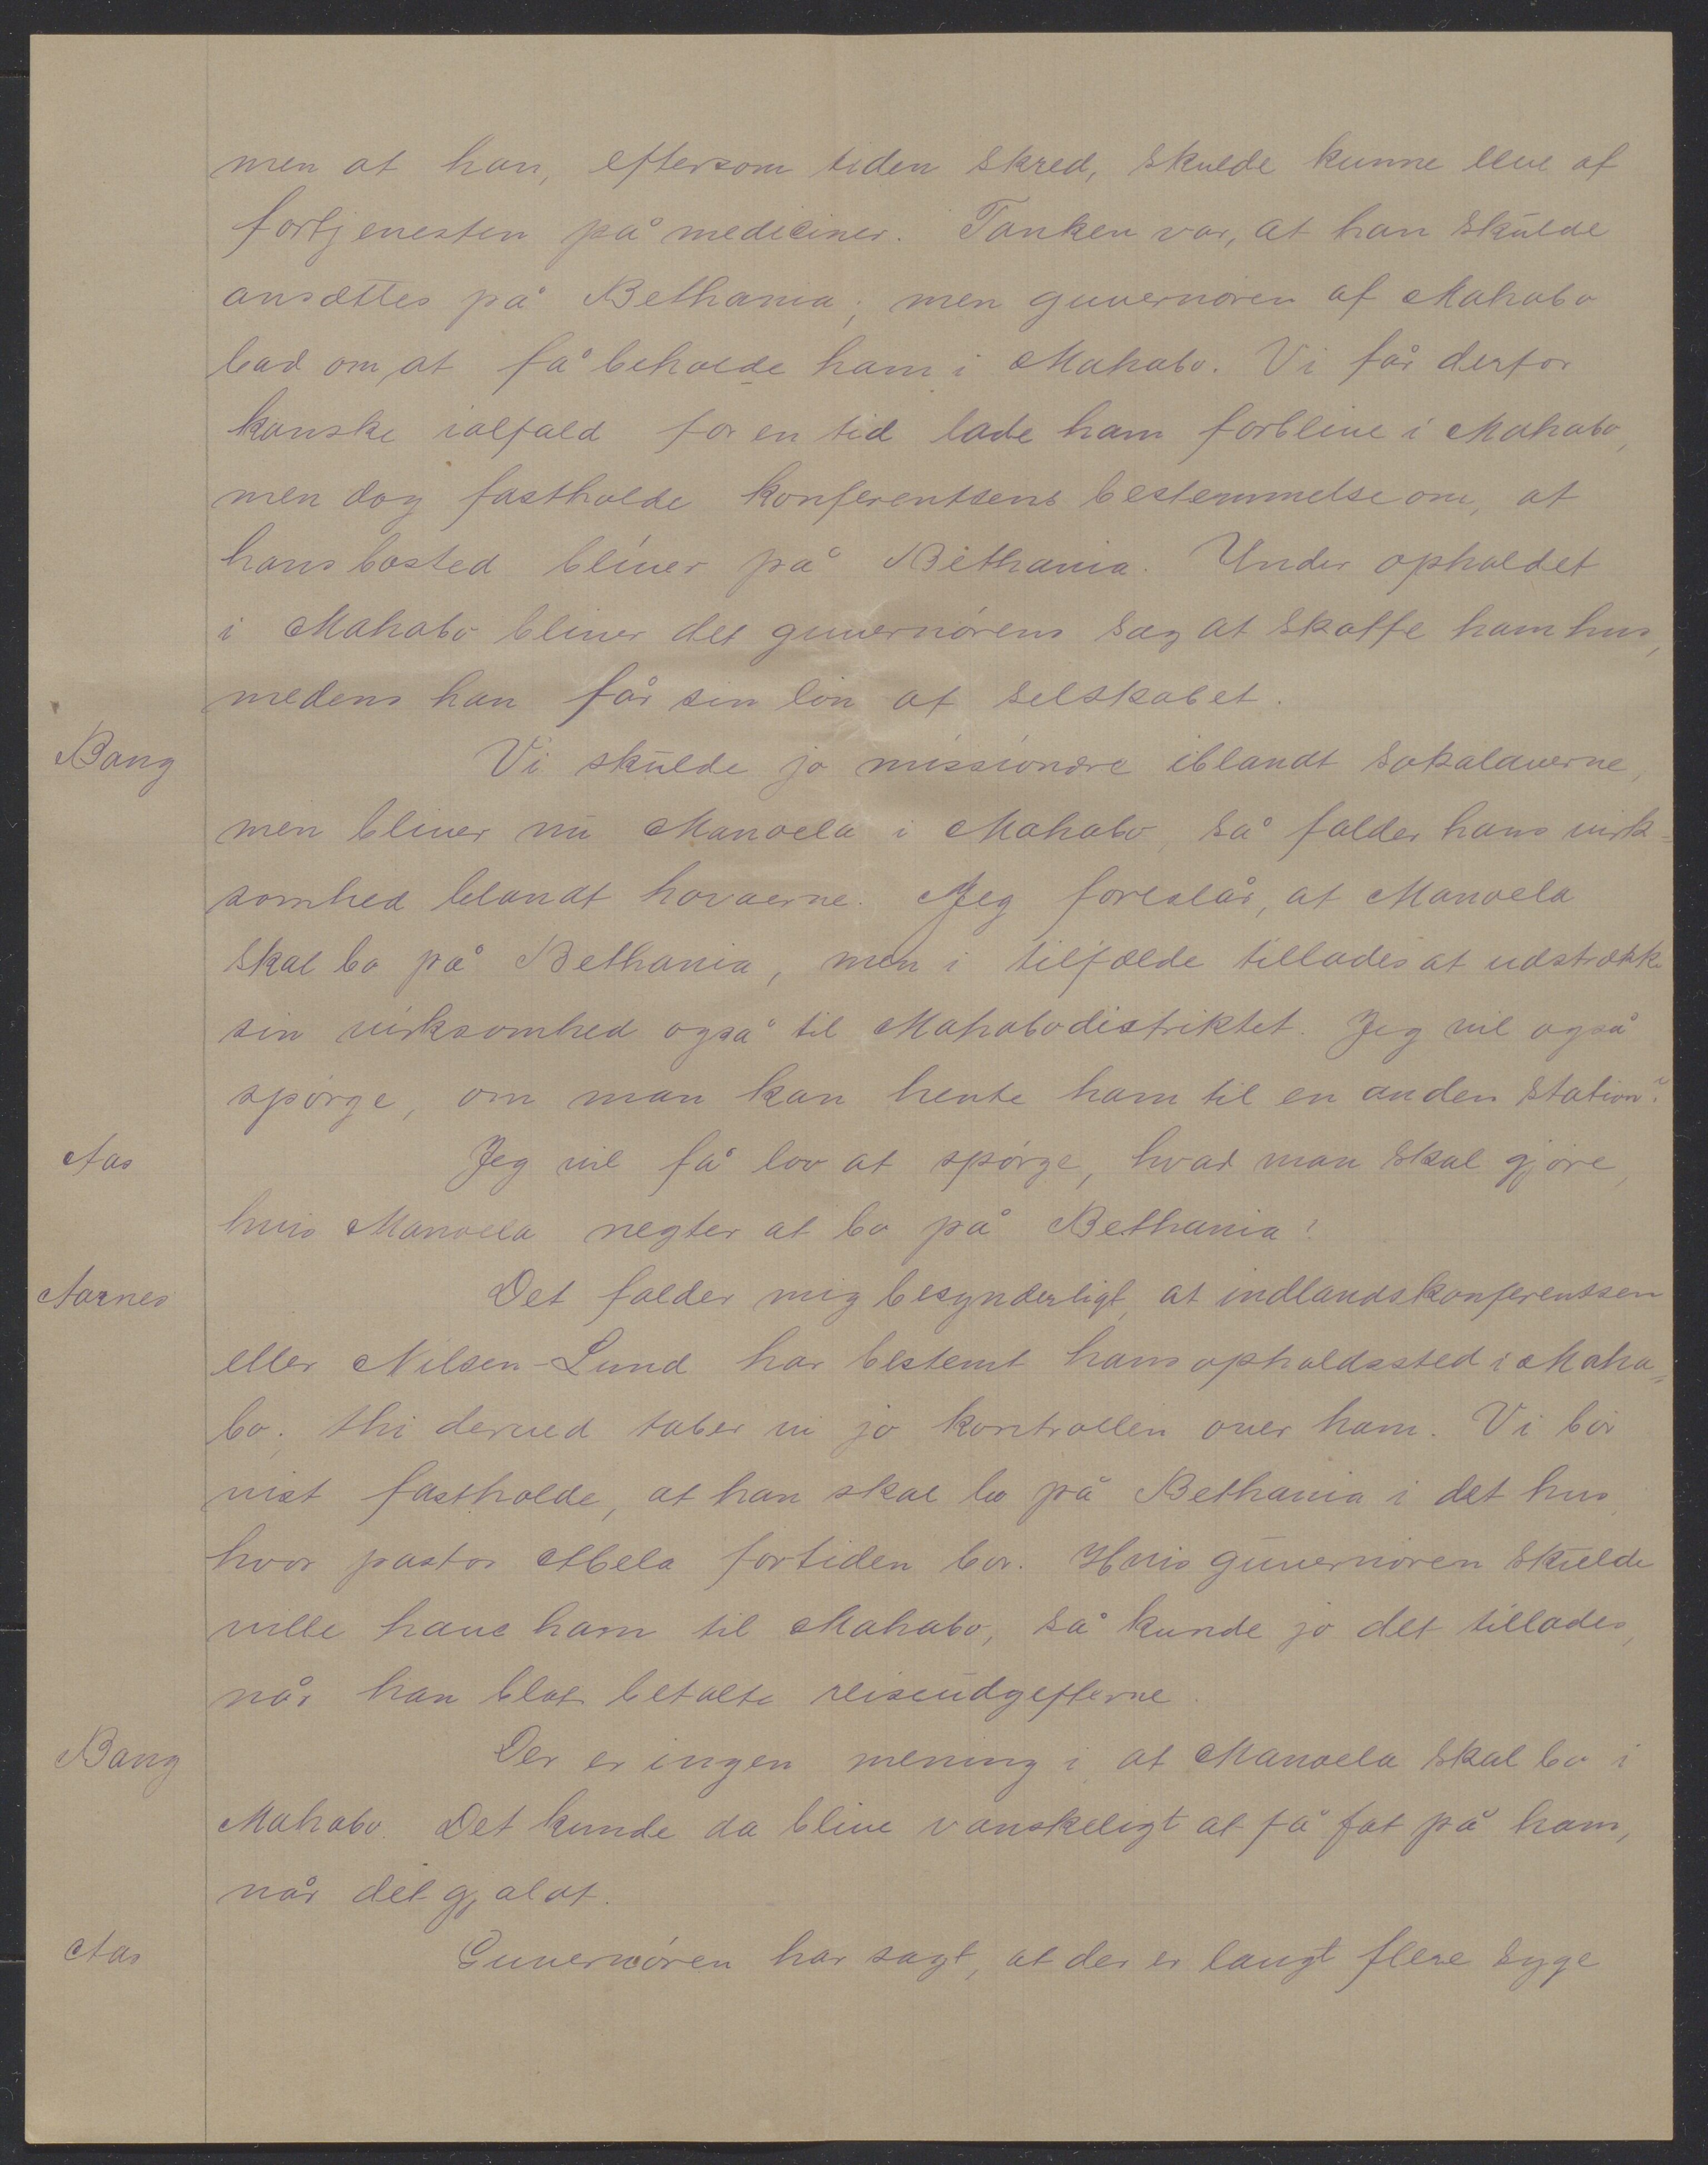 men at han, eftersom tiden skred, skulde kunne leve af
fortjenesten på mediciner. Tanken var, at han skulde
ansættes på Bethania; men guvernøren af Mahabo
bad om at få beholde ham i Mahabo. Vi får derfor
kanske ialfald for en tid lade ham forblive i Mahabo,
men dog fastholde konferentsens bestemmelse om, at
hans bosted bliver på Bethania. Under opholdet
i Mahabo bliver det guvernørens sag at skaffe ham hus,
medens han får sin løn af selskabet.
Bang Vi skulde jo missionære iblandt sakalaverne,
men bliver nu Manoela i Mahabo, så falder hans virk-
somhed blandt hovaerne. Jeg foreslår, at Manoela
skal bo på Bethania, men i tilfælde tillades at udstrække
sin virksomhed også til Mahabodistriktet. Jeg vil også
spørge, om man kan hente ham til en anden station?
Aas Jeg vil få lov at spørge, hvad man skal gjøre,
hvis Manoela negter at bo på Bethania?
Aarnes Det falder mig besynderligt, at indlandskonferentsen
eller Nilsen-Lund har bestemt hans opholdssted i Maha=
bo; thi derved taber vi jo kontrollen over ham. Vi bør
vist fastholde, at han skal bo på Bethania i det hus,
hvor pastor Abela fortiden bor. Hvis guvernøren skulde
ville have ham til Mahabo, så kunde jo det tillades,
når han blot betalte reiseudgifterne.
Bang Der er ingen mening i at Manoela skal bo i
Mahabo. Det kunde da blive vanskeligt at få fat på ham,
når det gjaldt.
Aas Guvernøren har sagt, at der er langt flere syge